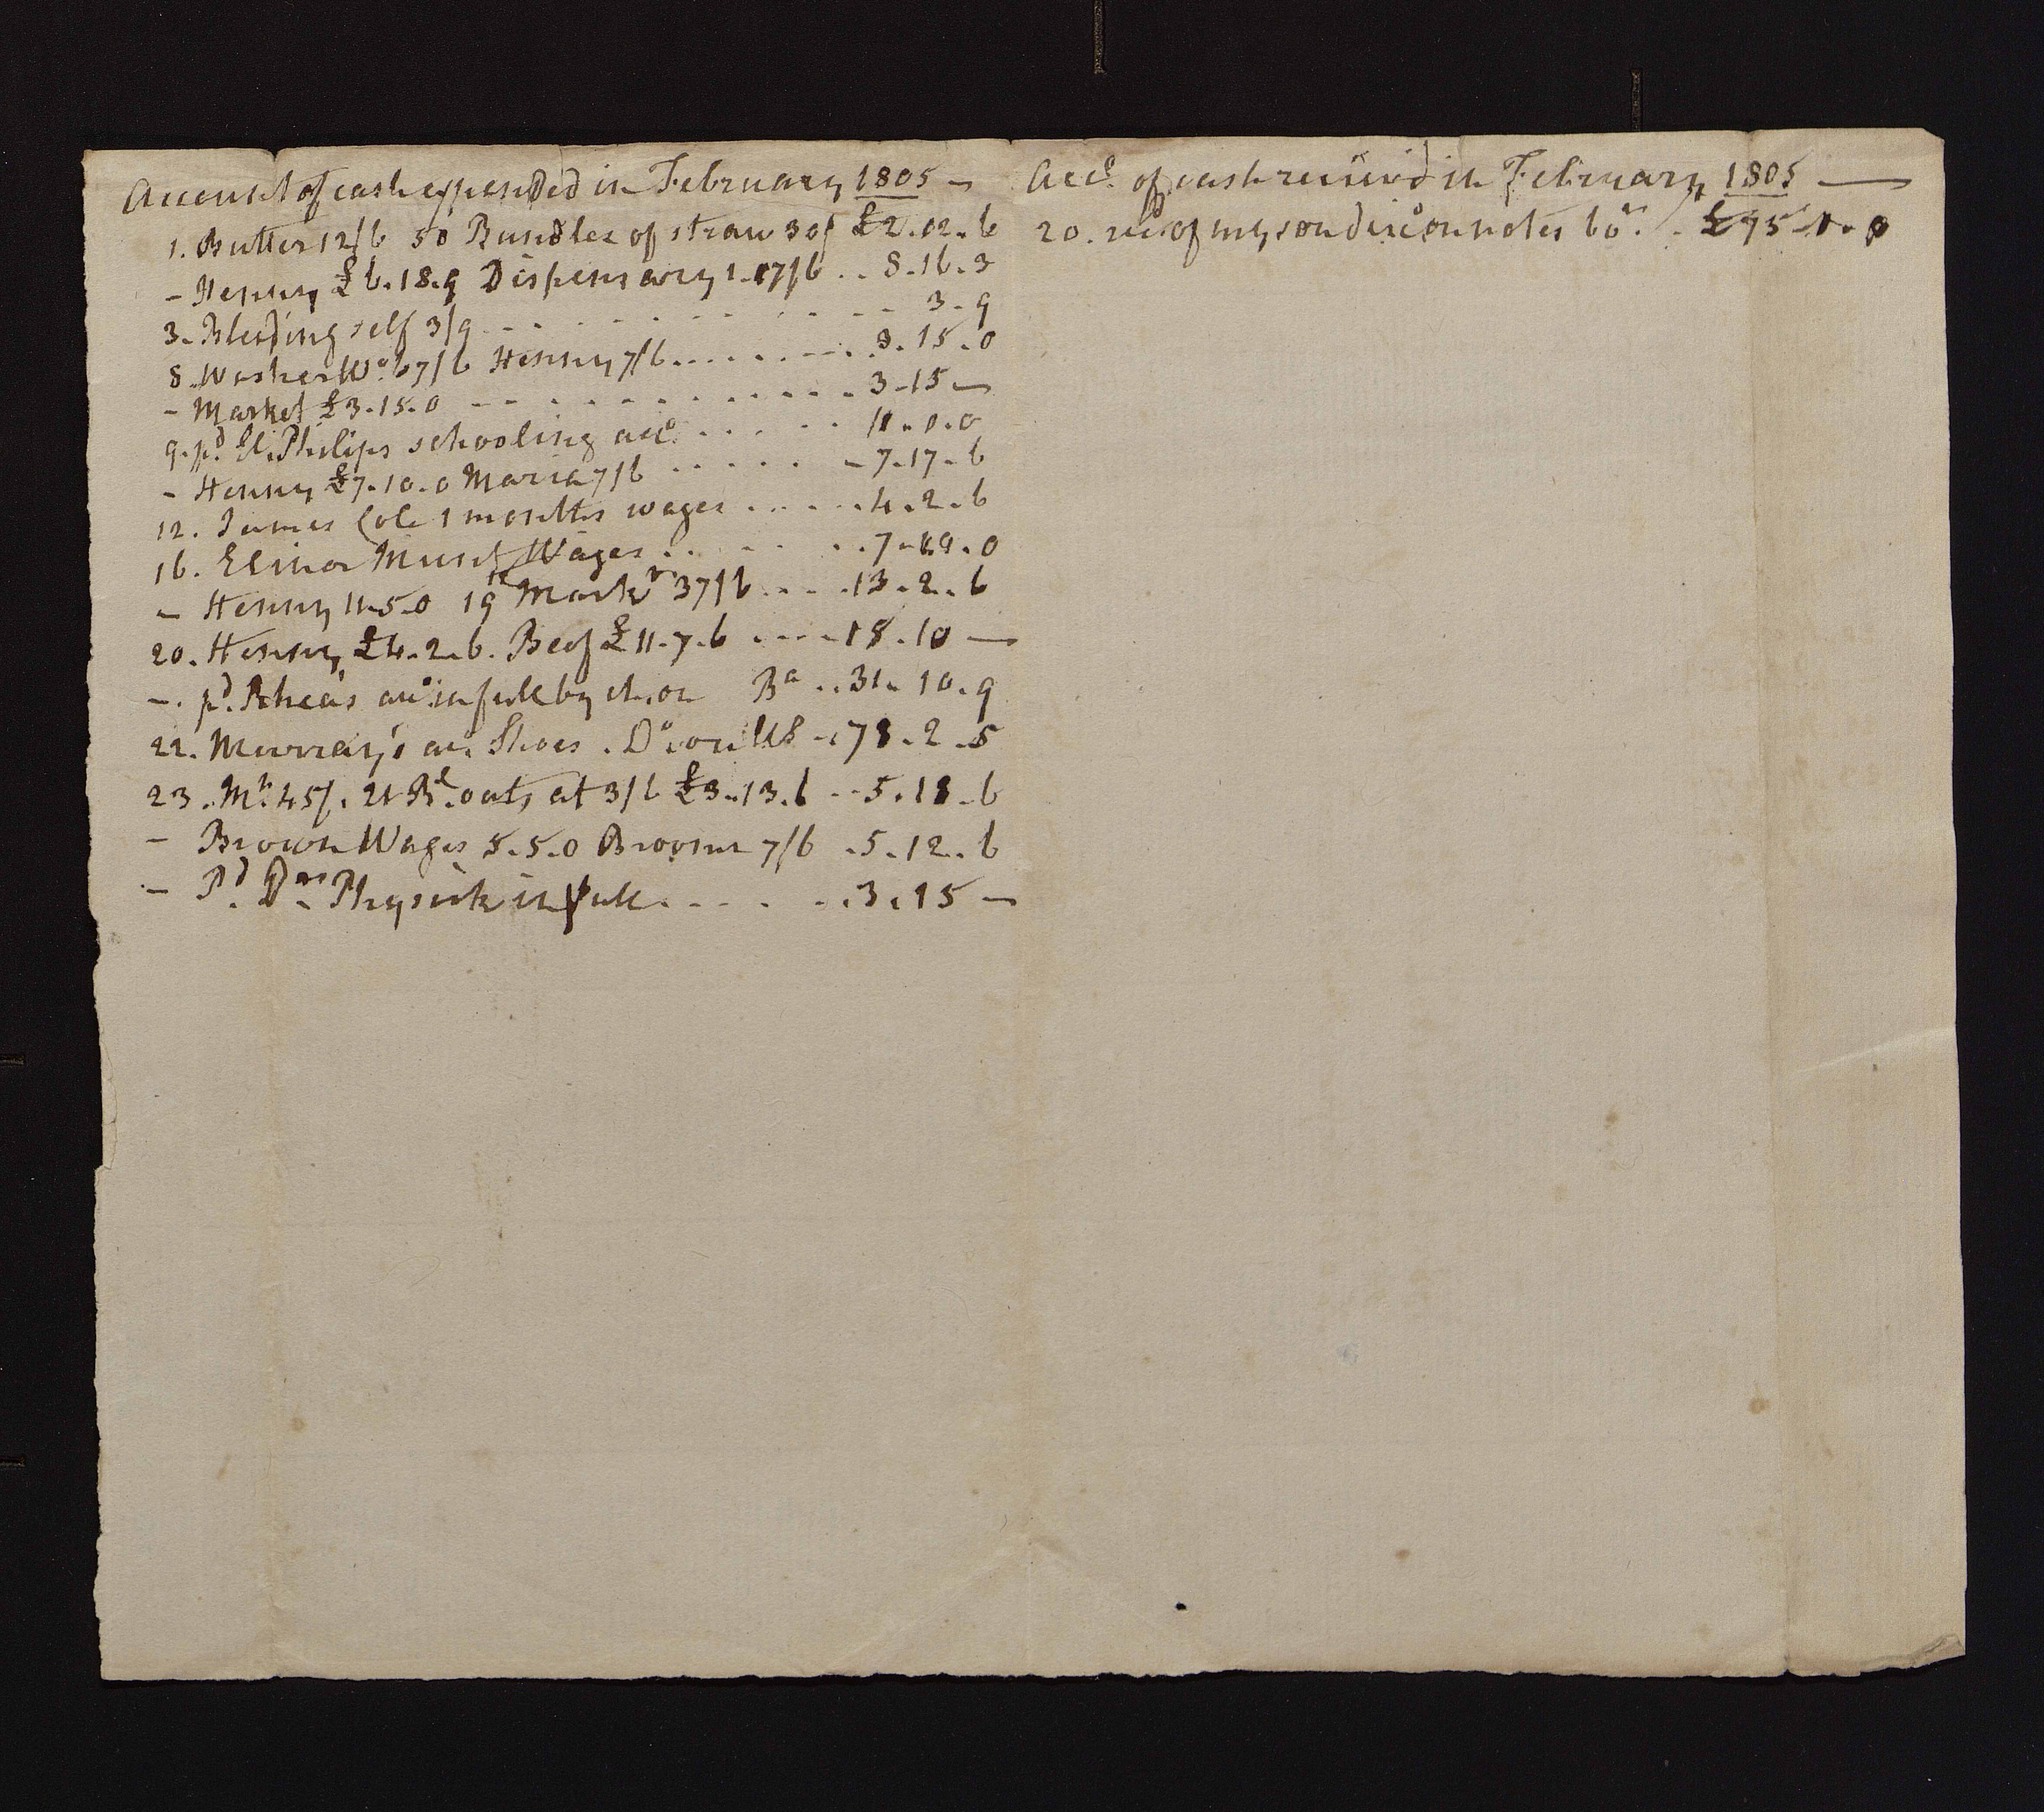 Account of cash expended in February 1805 —
1. Butter 12/6 50 Bundles of straw 30/ £2.02.6
- Henny £6.18.9 Dispensary 1.17/6 .. 8.16.3
3. Bleeding self 3/9 . . . . . . . . . 3.9
8. Washer Wo. 67/6 Henny 7/6 . . . . . . . 3.15.0
- Market £3.15.0 - - - - - - - - 3.15 —
9. pd. El. Philips schooling acct. . . . . . 11.0.0
- Henny £7.10.0 Maria 7/6 . . . . . - 7.17.6
12. James Cole 1 months wages . . . . . 4.2.6
16. Elinor Wages . . . . . 7.19.0
- Henny 11.5.0 19 Markt 37/6 . . . . 13.2.6
20. Henny £4.2.6. Beef £11.7.6 . . . . 15.10 —
-. pd. Rheas acct. in full by ch. on Ba .. 31.10.9
22. Murray's acct. Shoes. Do. on US - 78.2.5
23. Mt. 45/. 21 Bl. oats at 3/6 £3.13.6 -- 5.18.6
- Brown Wages 5.5.0 Brooms 7/6 .5.12.6
- Pd. Dr. Physick in full . . . . . 3.15 —
Acct. of cash received in February 1805 —
20. recd. of my son on notes £75.0.0